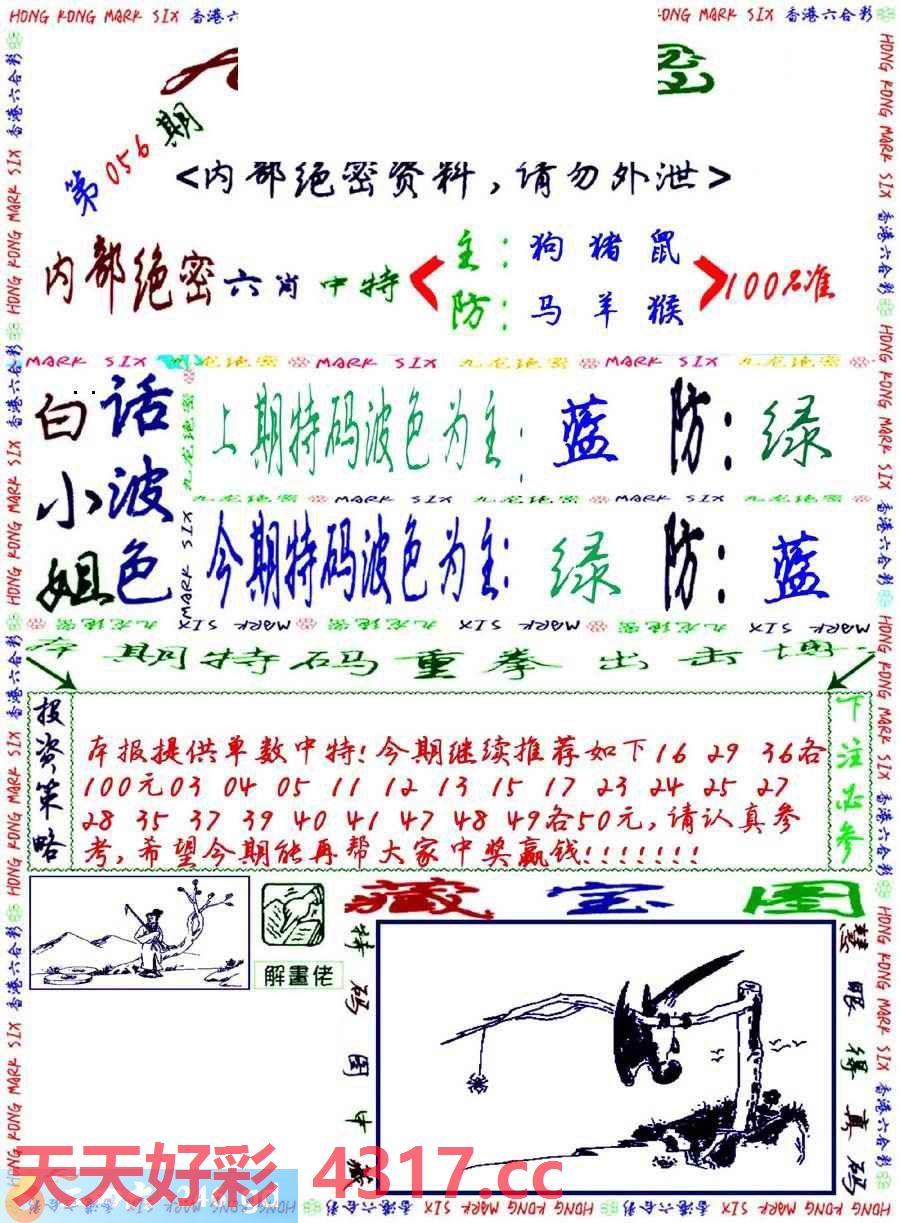 HONG KONG MARK SIX 香港六合彩
第056期
<内部绝密资料，请勿外泄>
内部绝密六肖中特
主：狗猪鼠
防：马羊猴
100%准
MARK SIX 九龙绝密 MARK SIX 九龙绝密 MARK SIX 九龙绝密
白话小波姐色
上期特码波色为主：蓝 防：绿
九龙绝密 MARK SIX 九龙绝密 MARK SIX 九龙绝密
今期特码波色为主：绿 防：蓝
本期特码重拳出击
投资策略
本报提供单数中特!今期继续推荐如下16 29 36各
100元03 04 05 11 12 13 15 17 23 24 25 27
28 35 37 39 40 41 47 48 49各50元,请认真参
考,希望今期能再帮大家中奖赢钱!!!!!!!
下注必参
藏宝图
解畫佬
特码图中藏
慧眼得真码
天天好彩 4317.cc